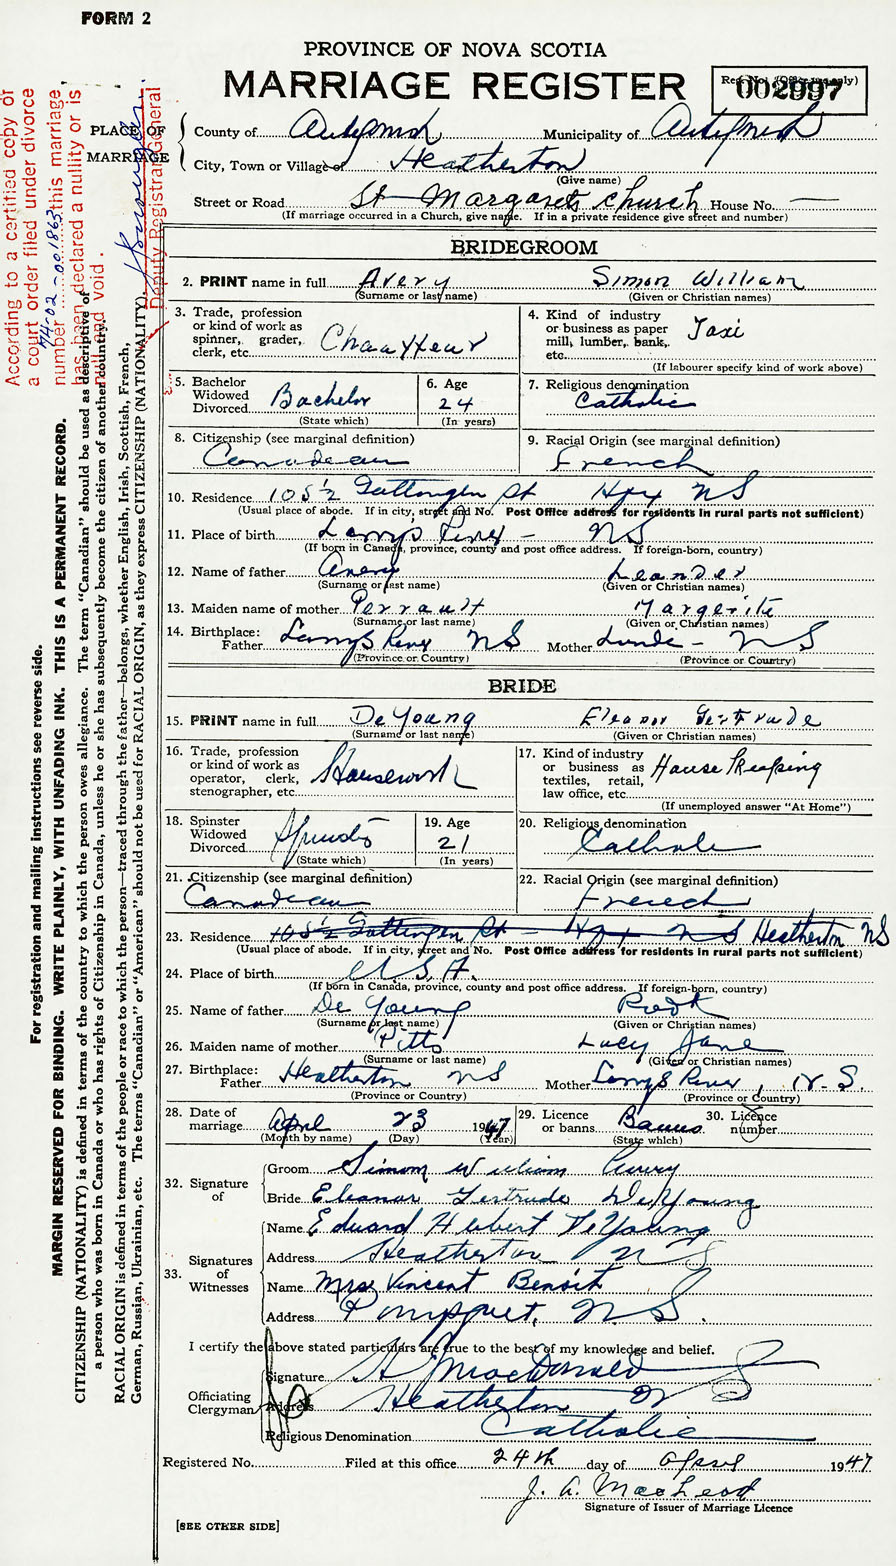 FORM 2
PROVINCE OF NOVA SCOTIA
MARRIAGE REGISTER
Reg. No. (Office use only)
002997
PLACE OF MARRIAGE
County of Antigonish Municipality of Antigonish
City, Town or Village of Heatherton
(Give name)
Street or Road St Margarets Church House No. —
(If marriage occurred in a Church, give name. If in a private residence give street and number)
BRIDEGROOM
2. PRINT name in full Avery Simon William
(Surname or last name) (Given or Christian names)
3. Trade, profession or kind of work as spinner, grader, clerk, etc.
4. Kind of industry or business as paper mill, lumber, bank, etc. Taxi
(If labourer specify kind of work above)
5. Bachelor Widowed Divorced Bachelor
(State which)
6. Age 24
(In years)
7. Religious denomination
Catholic
8. Citizenship (see marginal definition)
Canadean
9. Racial Origin (see marginal definition)
French
10. Residence 105½ Gottingen St Hfx NS
(Usual place of abode. If in city, street and No. Post Office address for residents in rural parts not sufficient)
11. Place of birth Larrys River - NS
(If born in Canada, province, county and post office address. If foreign-born, country)
12. Name of father Avery Leander
(Surname or last name) (Given or Christian names)
13. Maiden name of mother Perrault Margerite
(Surname or last name) (Given or Christian names)
14. Birthplace: Father Larrys River NS Mother - NS
(Province or Country) (Province or Country)
BRIDE
15. PRINT name in full De Young Eleanor Gertrude
(Surname or last name) (Given or Christian names)
16. Trade, profession or kind of work as operator, clerk, stenographer, etc. Housework
17. Kind of industry or business as textiles, retail, law office, etc. House Keeping
(If unemployed answer "At Home")
18. Spinster Widowed Divorced Spinster
(State which)
19. Age 21
(In years)
20. Religious denomination
Catholic
21. Citizenship (see marginal definition)
Canadean
22. Racial Origin (see marginal definition)
French
23. Residence 105½ Gottingen St - Hfx NS Heatherton NS
(Usual place of abode. If in city, street and No. Post Office address for residents in rural parts not sufficient)
24. Place of birth U.S.A.
(If born in Canada, province, county and post office address. If foreign-born, country)
25. Name of father De Young
(Surname or last name) (Given or Christian names)
26. Maiden name of mother Pitts Lucy Jane
(Surname or last name) (Given or Christian names)
27. Birthplace: Father Heatherton NS Mother Larrys River, N.S.
(Province or Country) (Province or Country)
28. Date of marriage April 23 1947
(Month by name) (Day) (Year)
29. Licence or banns Banns
(State which)
30. Licence number
32. Signature of
Groom Simon William Avery
Bride Eleanor Gertrude DeYoung
33. Signatures of Witnesses
Name Eduard Hubert DeYoung
Address Heatherton NS
Name Mrs Vincent Benoit
Address Pomquet, N.S.
I certify the above stated particulars are true to the best of my knowledge and belief.
Officiating Clergyman
Signature MacDonald
Address Heatherton NS
Religious Denomination Catholic
Registered No. Filed at this office 24th day of April 1947
J. A. MacLeod
Signature of Issuer of Marriage Licence
[SEE OTHER SIDE]
For registration and mailing instructions see reverse side.
MARGIN RESERVED FOR BINDING. WRITE PLAINLY, WITH UNFADING INK. THIS IS A PERMANENT RECORD.
CITIZENSHIP (NATIONALITY) is defined in terms of the country to which the person owes allegiance. The term "Canadian" should be used as descriptive of
a person who was born in Canada or who has rights of Citizenship in Canada, unless he or she has subsequently become the citizen of another country.
RACIAL ORIGIN is defined in terms of the people or race to which the person—traced through the father—belongs, whether English, Irish, Scottish, French,
German, Russian, Ukrainian, etc. The terms "Canadian" or "American" should not be used for RACIAL ORIGIN, as they express CITIZENSHIP (NATIONALITY).
According to a certified copy of
a court order filed under divorce
number 74-02-001863 this marriage
has been declared a nullity or is
null and void.
Deputy Registrar General